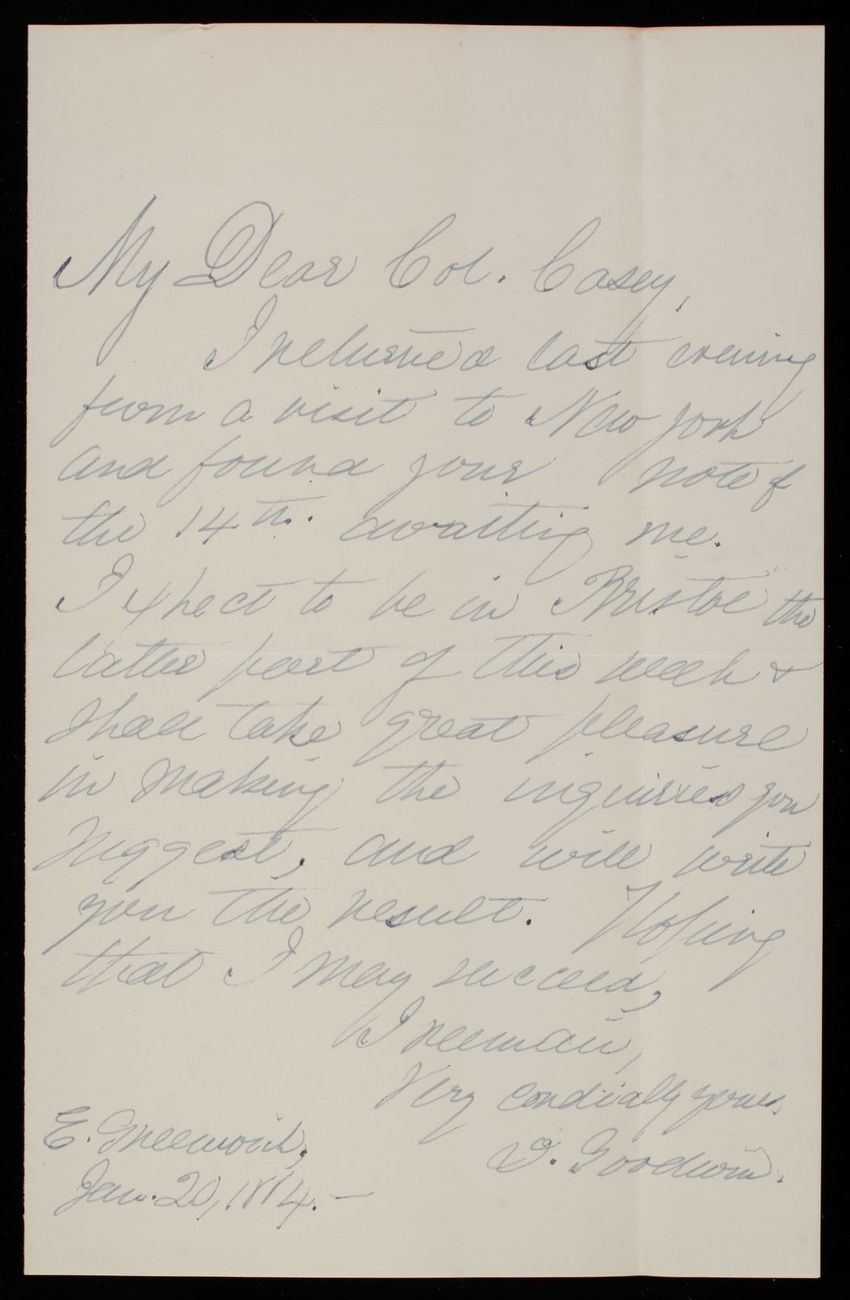 My Dear Col. Casey,
I returned last evening
from a visit to New York
and found your note of
the 14th. awaiting me.
I expect to be in Bristol the
latter part of this week &
shall take great pleasure
in making the inquiries you
suggest, and will write
you the result. Hoping
that I may succeed,
I remain,
Very cordially yours,
D. Goodwin.
E. Greenwich,
Jan. 20, 1884.—